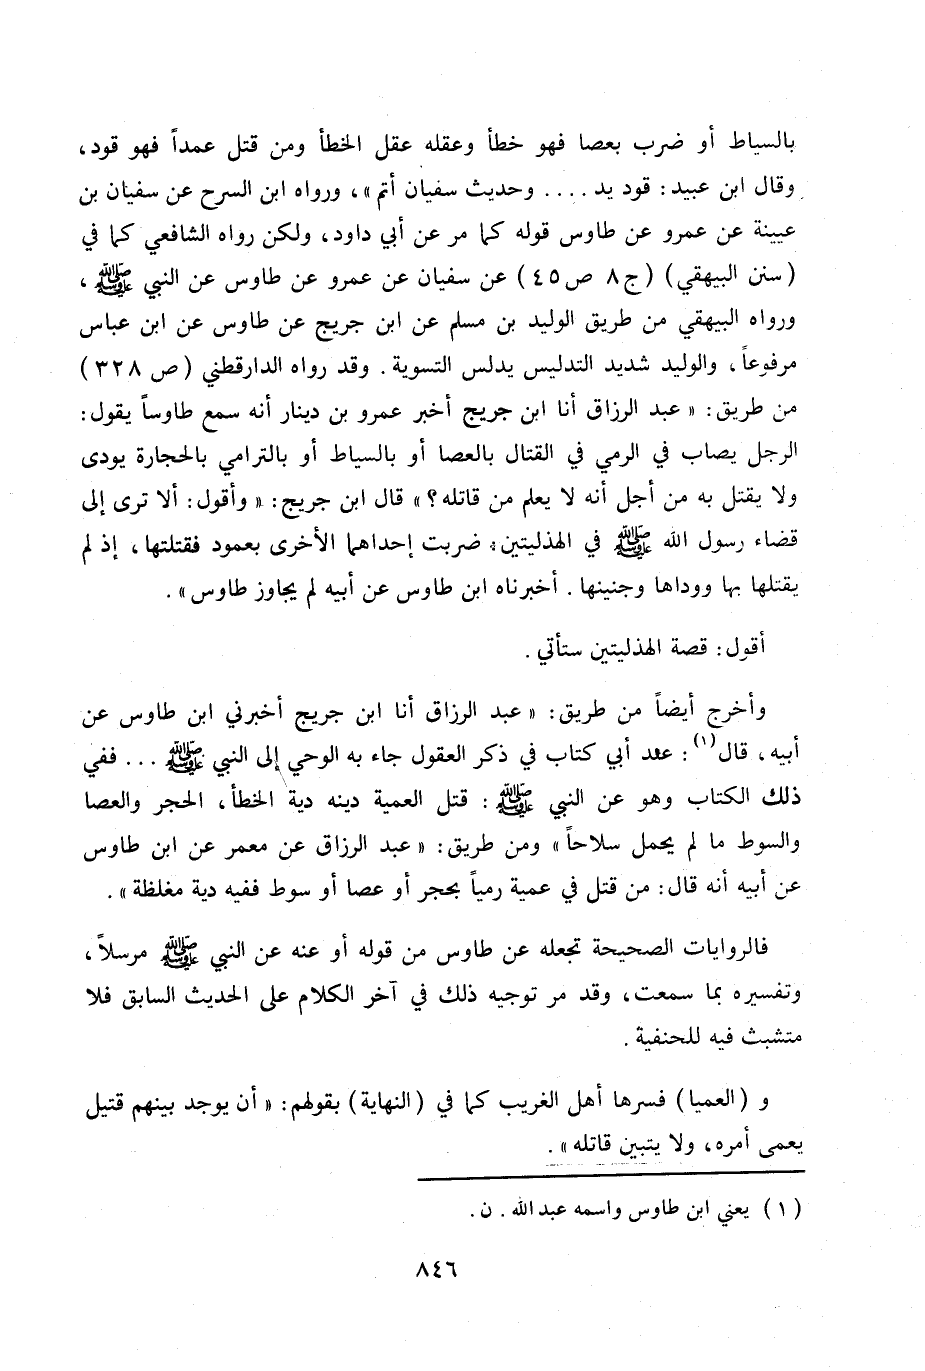 بالسياط أو ضرب بعصا فهو خطأ وعقله عقل الخطأ ومن قتل عمداً فهو قود،
وقال ابن عبيد: قود يد .... وحديث سفيان أتم»، ورواه ابن السرح عن سفيان بن
عيينة عن عمرو عن طاوس قوله كما مر عن أبي داود، ولكن رواه الشافعي كما في
(سنن البيهقي) (ج٨ ص٤٥) عن سفيان عن عمرو عن طاوس عن النبي ﷺ،
ورواه البيهقي من طريق الوليد بن مسلم عن ابن جريج عن طاوس عن ابن عباس
مرفوعاً، والوليد شديد التدليس يدلس التسوية. وقد رواه الدارقطني (ص ٣٢٨)
من طريق: «عبد الرزاق أنا ابن جريج أخبر عمرو بن دينار أنه سمع طاوساً يقول:
الرجل يصاب في الرمي في القتال بالعصا أو بالسياط أو بالترامي بالحجارة يودى
ولا يقتل به من أجل أنه لا يعلم من قاتله؟» قال ابن جريج: «وأقول: ألا ترى إلى
قضاء رسول الله ﷺ في الهذليتين: ضربت إحداهما الأخرى بعمود فقتلتها، إذ لم
يقتلها بها ووداها وجنينها. أخبرناه ابن طاوس عن أبيه لم يجاوز طاوس».
أقول: قصة الهذليتين ستأتي.
وأخرج أيضاً من طريق: «عبد الرزاق أنا ابن جريج أخبرني ابن طاوس عن
أبيه، قال(١): عند أبي كتاب في ذكر العقول جاء به الوحي إلى النبي ﷺ ... ففي
ذلك الكتاب وهو عن النبي ﷺ: قتل العمية دينه دية الخطأ، الحجر والعصا
والسوط ما لم يحمل سلاحاً» ومن طريق: «عبد الرزاق عن معمر عن ابن طاوس
عن أبيه أنه قال: من قتل في عمية رمياً بحجر أو عصا أو سوط ففيه دية مغلظة».
فالروايات الصحيحة تجعله عن طاوس من قوله أو عنه عن النبي ﷺ مرسلاً،
وتفسيره بما سمعت، وقد مر توجيه ذلك في آخر الكلام على الحديث السابق فلا
متشبث فيه للحنفية.
و (العميا) فسرها أهل الغريب كما في (النهاية) بقولهم: «أن يوجد بينهم قتيل
يعمى أمره، ولا يتبين قاتله».
(١) يعني ابن طاوس واسمه عبد الله. ن.
٨٤٦